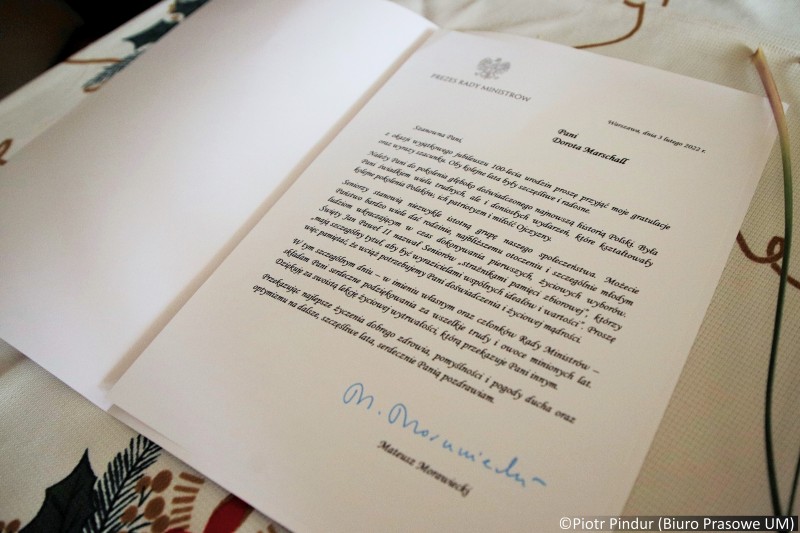 PREZES RADY MINISTRÓW
Warszawa, dnia 3 lutego 2022 r.
Pani
Dorota Marschall
Szanowna Pani,
z okazji wyjątkowego jubileuszu 100-lecia urodzin proszę przyjąć moje gratulacje
oraz wyrazy szacunku. Oby kolejne lata były szczęśliwe i radosne.
Należy Pani do pokolenia głęboko doświadczonego najnowszą historią Polski. Była
Pani świadkiem wielu trudnych, ale i doniosłych wydarzeń, które kształtowały
kolejne pokolenia Polaków, ich patriotyzm i miłość Ojczyzny.
Seniorzy stanowią niezwykle istotną grupę naszego społeczeństwa. Możecie
Państwo bardzo wiele dać rodzinie, najbliższemu otoczeniu i szczególnie młodym
ludziom wkraczającym w czas dokonywania pierwszych, życiowych wyborów.
Święty Jan Paweł II nazwał Seniorów „strażnikami pamięci zbiorowej”, którzy
„mają szczególny tytuł, aby być wyrazicielami wspólnych ideałów i wartości”. Proszę
więc pamiętać, że wciąż potrzebujemy Pani doświadczenia i życiowej mądrości.
W tym szczególnym dniu – w imieniu własnym oraz członków Rady Ministrów –
składam Pani serdeczne podziękowania za wszelkie trudy i owoce minionych lat.
Dziękuję za swoistą lekcję życiowej wytrwałości, którą przekazuje Pani innym.
Przekazując najlepsze życzenia dobrego zdrowia, pomyślności i pogody ducha oraz
optymizmu na dalsze, szczęśliwe lata, serdecznie Panią pozdrawiam.
M. Morawiecki
Mateusz Morawiecki
©Piotr Pindur (Biuro Prasowe UM)